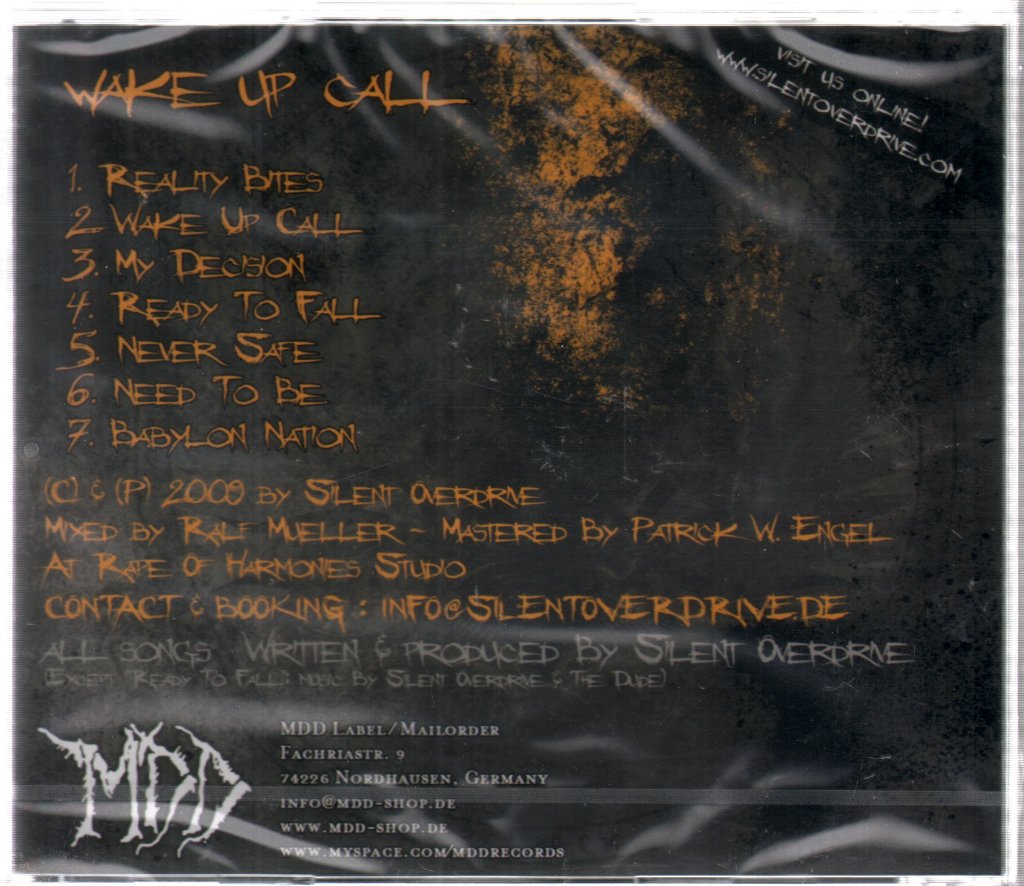 WAKE UP CALL
VISIT US ONLINE!
WWW.SILENTOVERDRIVE.COM
1. REALITY BITES
2 WAKE UP CALL
3. MY DECISION
4. READY TO FALL
5. NEVER SAFE
6. NEED TO BE
7. BABYLON NATION
(C) & (P) 2009 BY SILENT OVERDRIVE
MIXED BY RALF MUELLER ~ MASTERED BY PATRICK W. ENGEL
AT RAPE OF HARMONIES STUDIO
CONTACT & BOOKING : INFO@SILENTOVERDRIVE.DE
ALL SONGS WRITTEN & PRODUCED BY SILENT OVERDRIVE
(EXCEPT "READY TO FALL": MUSIC BY SILENT OVERDRIVE & THE DUDE)
MDD
MDD LABEL/MAILORDER
FACHRIASTR. 9
74226 NORDHAUSEN, GERMANY
INFO@MDD-SHOP.DE
WWW.MDD-SHOP.DE
WWW.MYSPACE.COM/MDDRECORDS